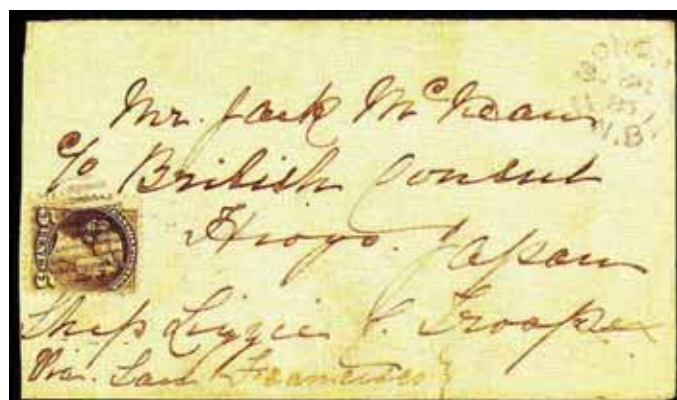 Mr. Jack McKean
c/o British Consul
Hiogo. Japan
Ship Lizzie C. Troop
Via. San Francisco
N.B.